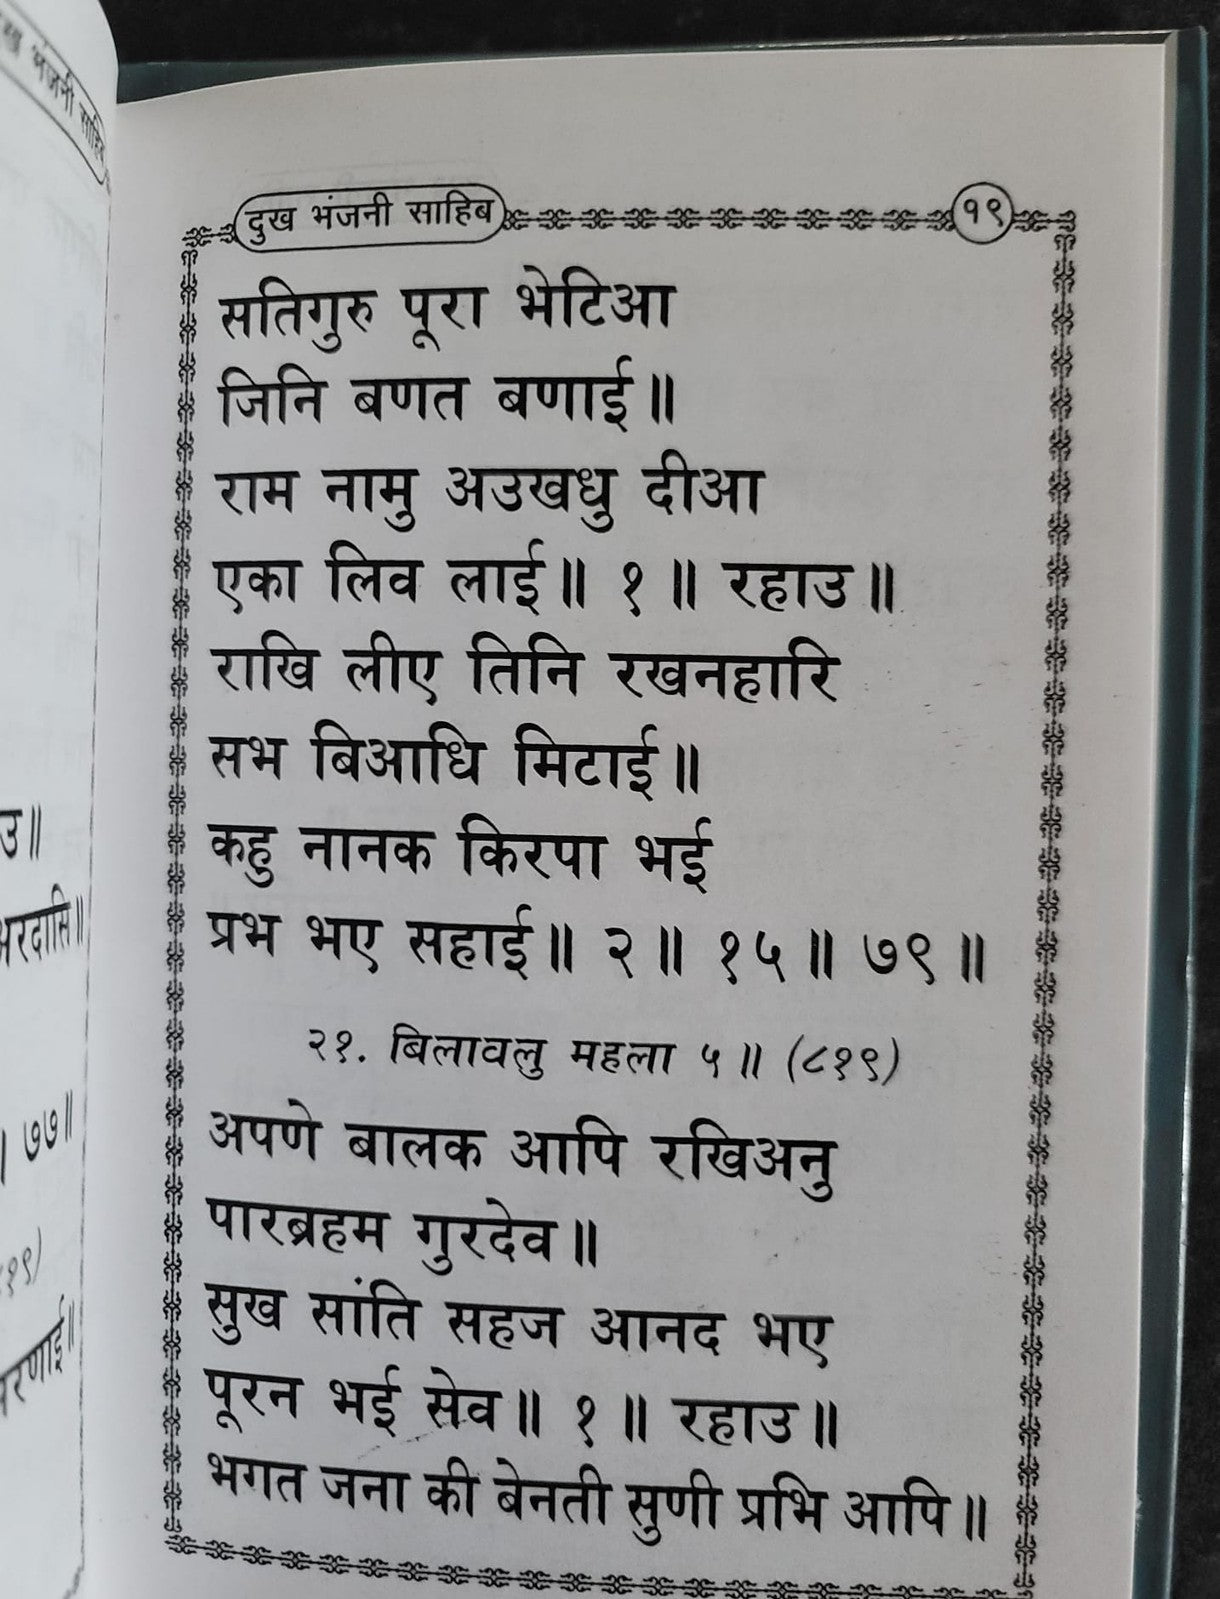 दुख भंजनी साहिब
१९
सतिगुरु पूरा भेटिआ
जिनि बणत बणाई॥
राम नामु अउखधु दीआ
एका लिव लाई॥ १॥ रहाउ॥
राखि लीए तिनि रखनहारि
सभ बिआधि मिटाई॥
कहु नानक किरपा भई
प्रभ भए सहाई॥ २॥ १५॥ ७९॥
२१. बिलावलु महला ५॥ (८१९)
अपणे बालक आपि रखिअनु
पारब्रहम गुरदेव॥
सुख सांति सहज आनद भए
पूरन भई सेव॥ १॥ रहाउ॥
भगत जना की बेनती सुणी प्रभि आपि॥
भंजनी साहिब
उ॥
अरदासि॥
७७॥
१९)